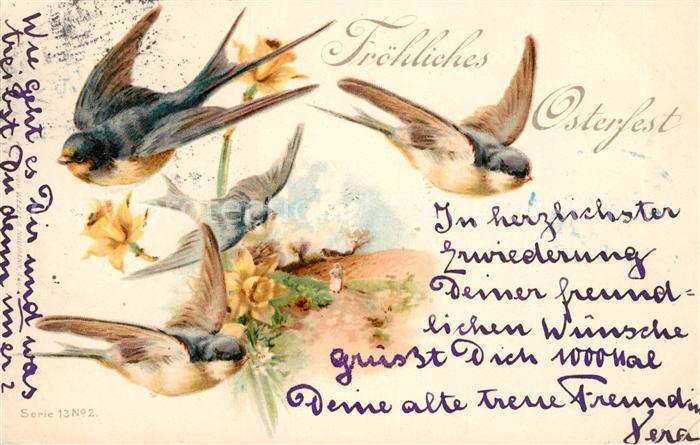 Fröhliches
Osterfest
In herzlichster
Erwiederung
Deiner freund=
lichen Wünsche
grüsst Dich 1000 Mal
Deine alte treue Freundin
Vera
Wie geht es Dir und was
treibst Du denn immer?
Serie 13 No 2.